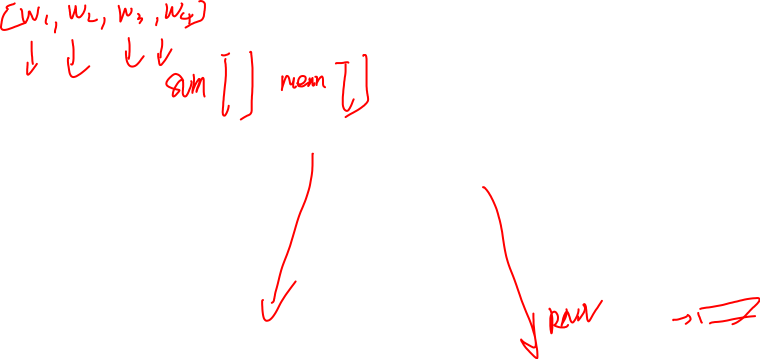 [W1, W2, W3, W4]
sum [ ] mean [ ]